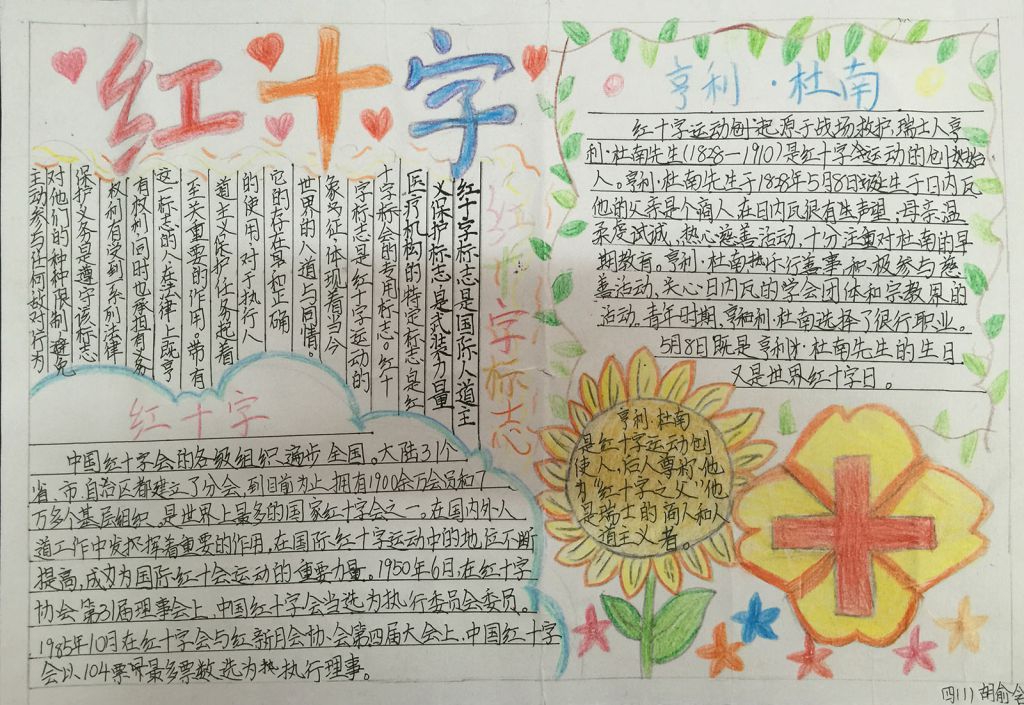 红十字
红十字标志
红十字标志是国际人道主
义保护标志,是武装力量
医疗机构的特定标志,是红
十字标会的专用标志。红十
字标志是红十字运动的
象征,体现着当今
世界的人道与同情。
它的存在其和正确
的使用,对于执行人
道主义保护任务起着
至关重要的作用。带有
这一标志的人在法律上既享
有权利同时也承担有义务
权利有受到系列法律
保护义务是遵守该标志
对他们的种种限制,避免
主动参与任何敌对行为
红十字
中国红十字会的各级组织遍步全国。大陆31个
省、市、自治区都建立了分会,到目前为止,拥有1900余万会员和7
万多个基层组织,是世界上最多的国家红十字会之一。在国内外人
道工作中发挥着重要的作用,在国际红十字运动中的地位不断
提高,成为国际红十会运动的重要力量。1950年6月,在红十字
协会第31届理事会上,中国红十字会当选为执行委员会委员。
1985年10月在红十字会与红新月会协会第四届大会上,中国红十字
会以104票最多票数选为执行理事。
亨利·杜南
红十字运动创起源于战场救护,瑞士人亨
利·杜南先生(1828—1910)是红十字会运动的创始
人。亨利·杜南先生于1828年5月8日出生于日内瓦
他的父亲是个商人,在日内瓦很有生声望,母亲温
柔虔诚,热心慈善活动,十分注重对杜南的早
期教育。亨利·杜南热乐行善事积极参与慈
善活动、关心日内瓦的学会团体和宗教界的
活动。青年时期,亨利·杜南选择了很行职业。
5月8日既是亨利·杜南先生的生日
又是世界红十字日。
亨利·杜南
是红十字运动创
使人,后人尊称他
为“红十字之父”他
是瑞士的商人和人
道主义者。
四(1) 胡俞含